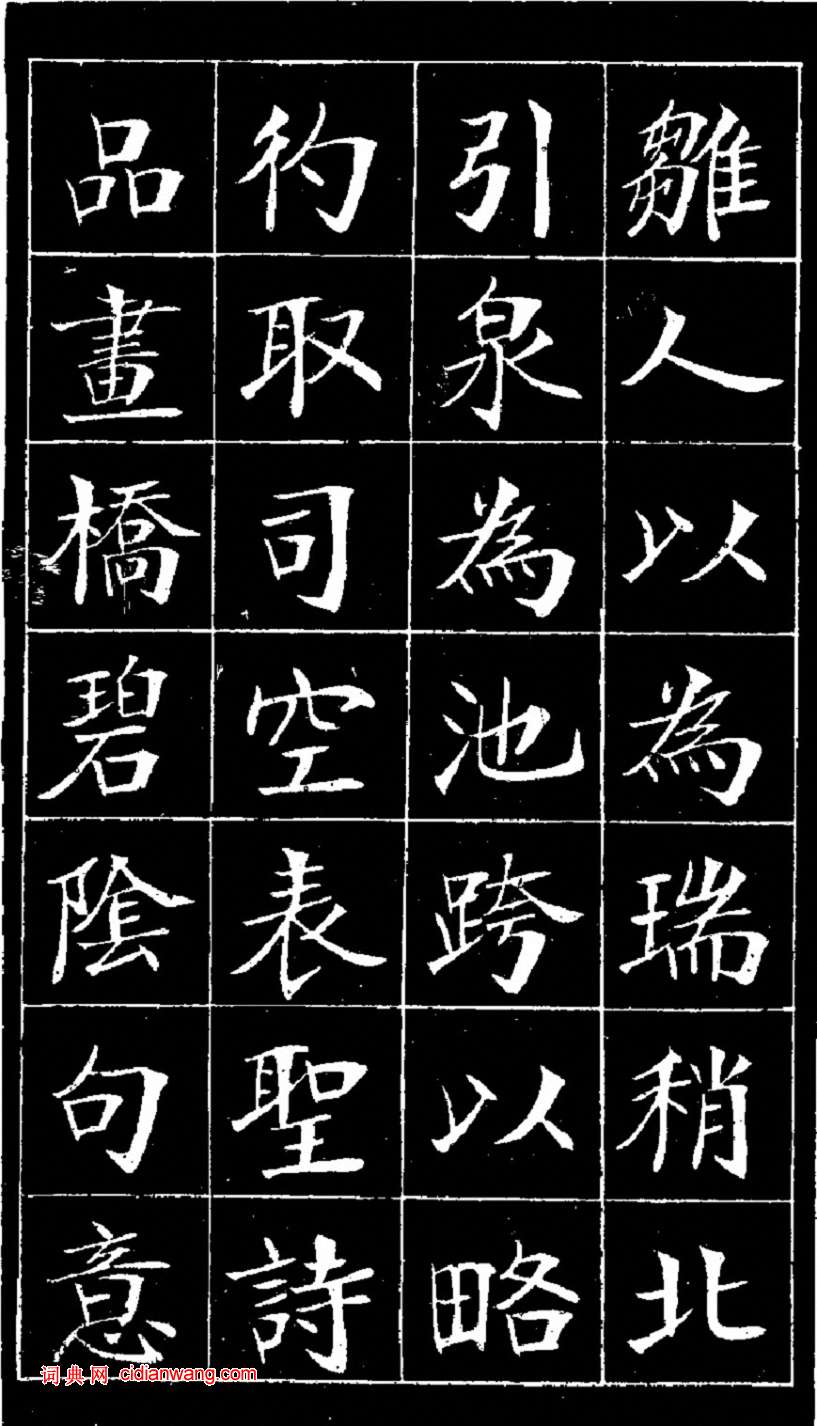 雛人以為瑞稍北
引泉為池跨以略
彴取司空表聖詩
品畫橋碧陰句意
词典网 cidianwang.com